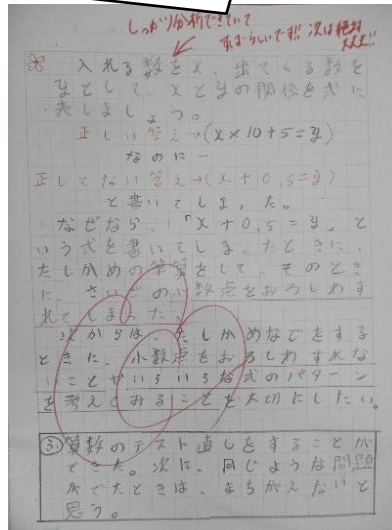 しっかり分析できていて
すばらしいです!! 次は絶対
大丈夫!!
入れる数をx、出てくる数を
yとして、xとyの関係を式に
表しましょう。
正しい答え→(x×10+5=y)
なのに-
正しくない答え→(x+0.5=y)
と書いてしまった。
なぜなら、「x+0.5=y」と
いう式を書いてしまったときに、
たしかめの筆算をして、そのとき
に、さいごの小数点をおろしわす
れてしまった。
次からは、たしかめなどをする
ときに、小数点をおろしわすれな
いことやいろいろな式のパターン
を考えてみることを大切にしたい。
ふ 算数のテスト直しをすることが
できた。次に、同じような問題
がでたときは、まちがえないと
思う。